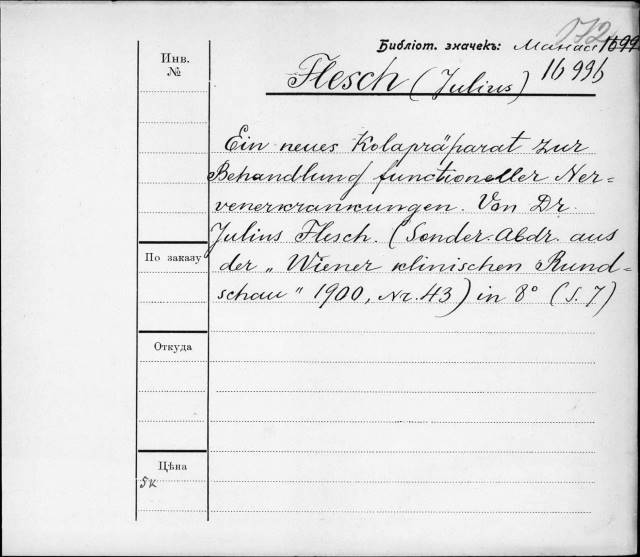 172
Библіот. значекъ: Манас 1699
16996
Инв.
№
Flesch (Julius)
Ein neues Kolapräparat zur
Behandlung functioneller Ner=
venerkrankungen. Von Dr.
Julius Flesch. (Sonder. Abdr. aus
der „Wiener klinischen Rund=
schau" 1900, Nr. 43) in 8° (S. 7)
По заказу
Откуда
Цѣна
5к